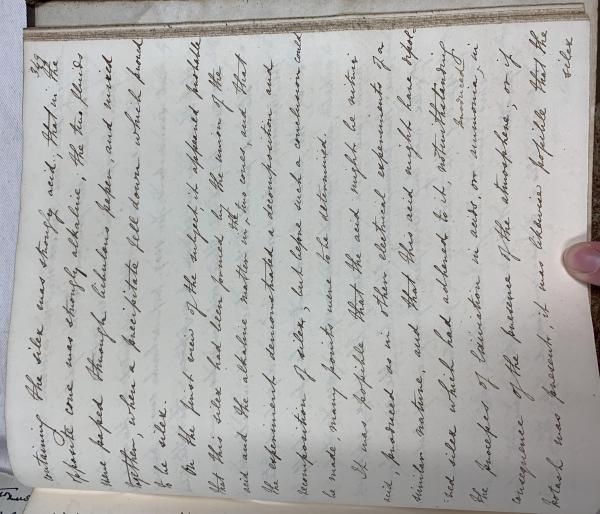 349
containing the silex was strongly acid, that in the
opposite cone was strongly alkaline; the two fluids
were passed through bibulous paper, and mixed
together, when a precipitate fell down which proved
to be silex.
On the first view of the subject, it appeared probable
that this silex had been formed by the union of the
acid and the alkaline matter in the two cones, and that
the experiment demonstrated a decomposition and
recomposition of silex; but before such a conclusion could
be made, many points were to be determined.
It was possible that the acid might be nitric
acid, produced as in other electrical experiments of a
similar nature, and that this acid might have
silex which had adhered to it, notwithstanding
the process of lixiviation in acids, or ammonia, in
consequence of the presence of the atmosphere, or of
Potash was present; it was likewise possible that the
silex